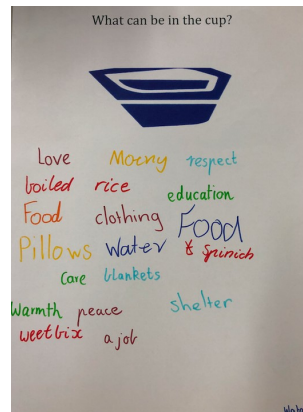 What can be in the cup?
Love Moeny respect
boiled rice education
Food clothing Food
Pillows Water & Spinich
Care blankets
Warmth peace shelter
weetbix a job